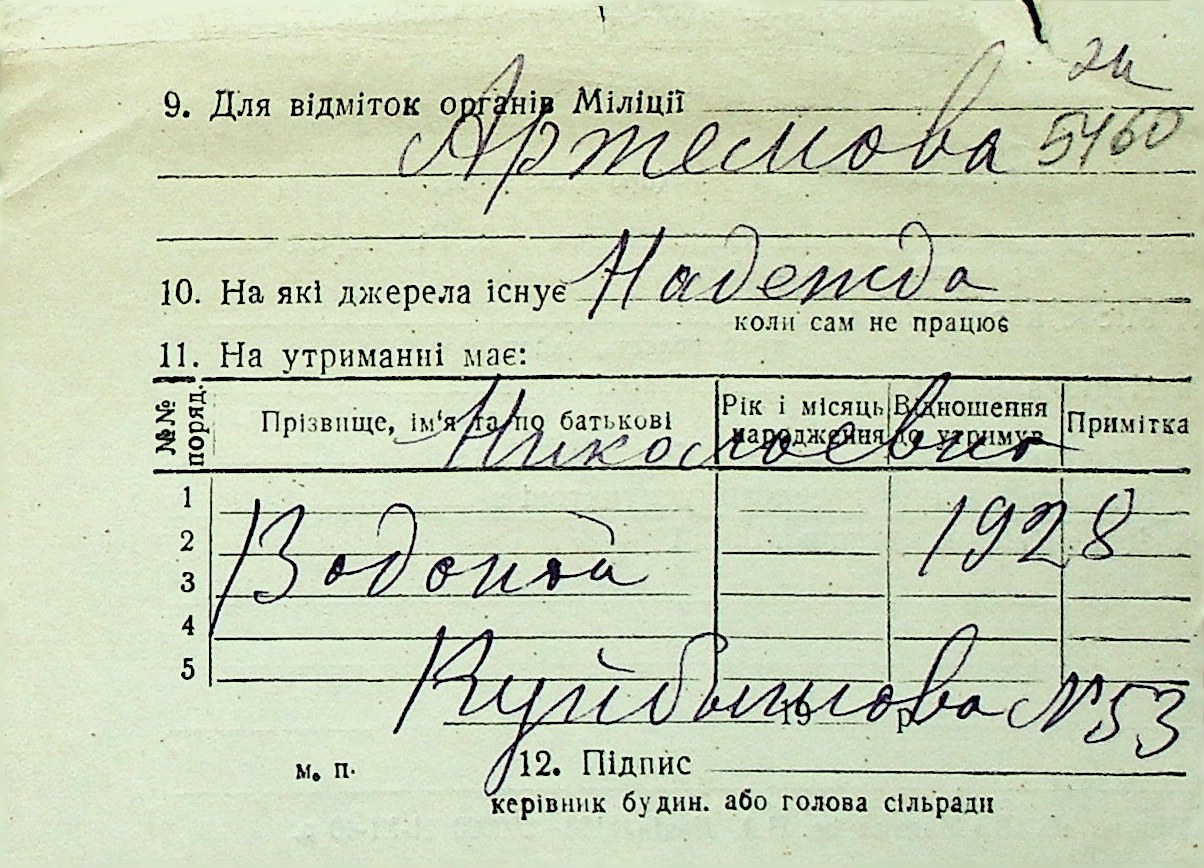 9. Для відміток органів Міліції
Артемова 5460
10. На які джерела існує Надежда
коли сам не працює
11. На утриманні має:
№№ поряд. Прізвище, ім'я та по батькові Рік і місяць народження Відношення до утримув. Примітка
Николаевна
1
2 1928
3
4
5
Куйбышова №53
19 р.
м. п. 12. Підпис
керівник будин. або голова сільради